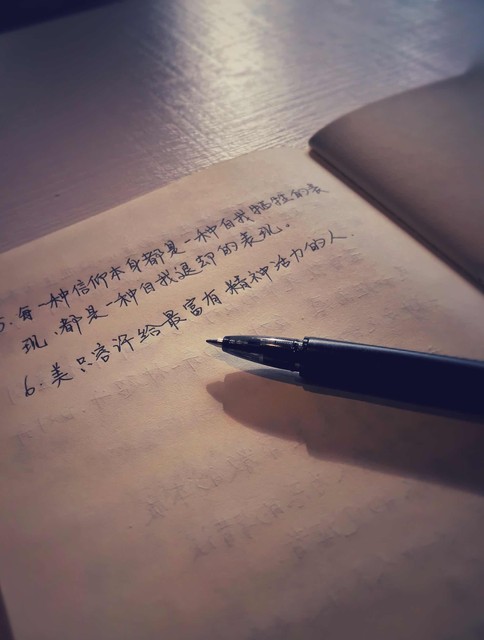 5.每一种信仰本身都是一种自我牺牲的表
现,都是一种自我退却的表现。
6.美只容许给最富有精神活力的人.